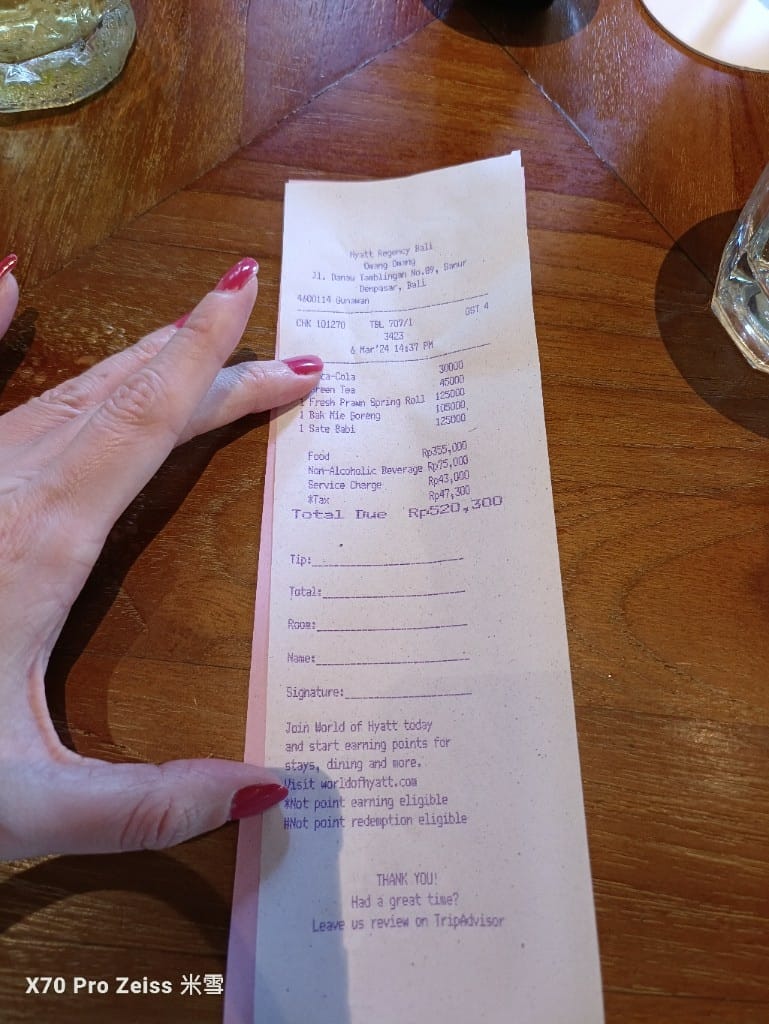 Hyatt Regency Bali
Omang Omang
Jl. Danau Tamblingan No.89, Sanur
Denpasar, Bali
4600114 Gunawan
CHK 101270 TBL 707/1 GST 4
3423
6 Mar'24 14:37 PM
-Cola 30000
Tea 45000
1 Fresh Prawn Spring Roll 125000
1 Bak Mie Goreng 105000
1 Sate Babi 125000
Food Rp355,000
Non-Alcoholic Beverage Rp75,000
Service Charge Rp43,000
*Tax Rp47,300
Total Due Rp520,300
Tip:
Total:
Room:
Name:
Signature:
Join World of Hyatt today
and start earning points for
stays, dining and more.
Visit worldofhyatt.com
*Not point earning eligible
#Not point redemption eligible
THANK YOU!
Had a great time?
Leave us review on TripAdvisor
X70 Pro Zeiss 米雪